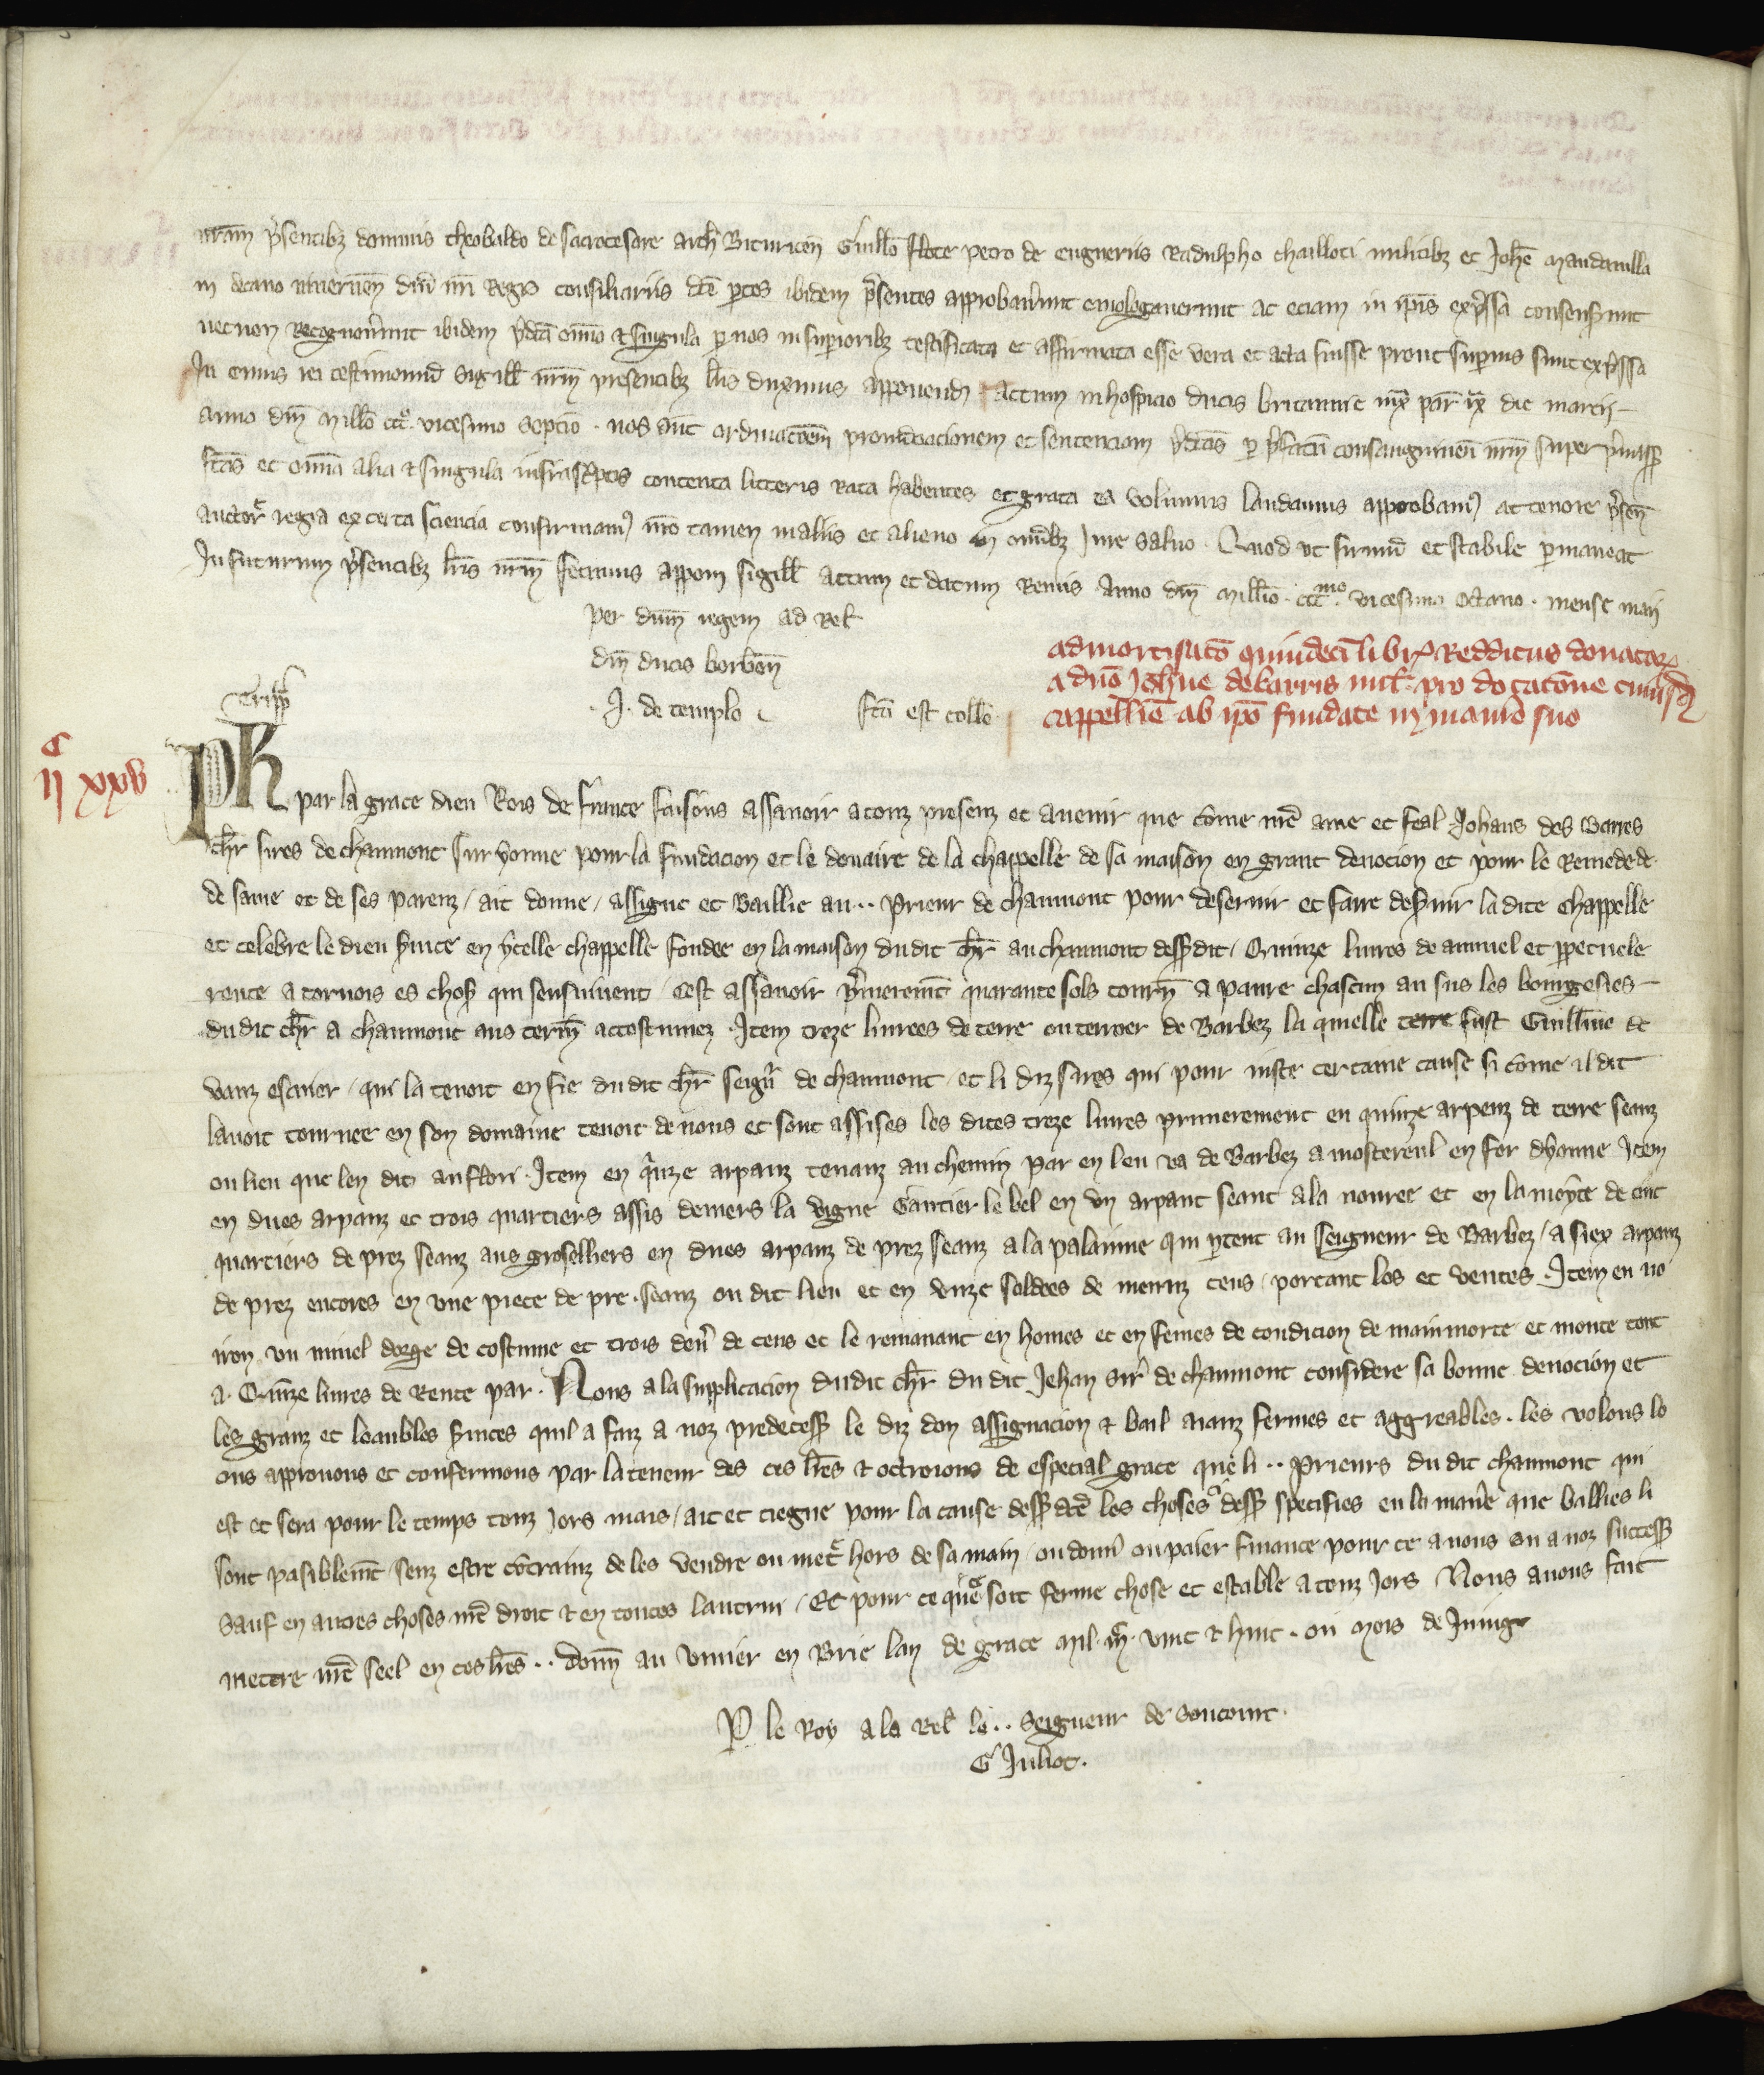 nr̄am p̄sentibz dominis theobaldo de sacrocesare arch Bituricen̄ Guill̄o flote petro de cugneriis Radulpho chailloti militibz et Joh̄e mandevilla
in decano nivernen̄ dn̄i nr̄i Regis consiliariis dc̄e p̄tes ibidem p̄sentes approbaverunt emologaverunt ac eciam in ip̄is exp̄ssa consenserunt
necnon recognoverunt ibidem p̄dc̄a om̄ia et singula p nos in superioribz testificata et affirmata esse vera et acta fuisse prout superius sunt exp̄ssa
In cuius rei testimoniū sigill̄ nr̄m presentibz lr̄is duximus apponendū actum in hospicio ducis britannie die marcii
anno dn̄i mill̄o ccc̊ vicesimo septīo . nos aut̄ ordinac̄oem pronūciacionem et sentenciam p̄dc̄as p p̄fatū consanguineū nr̄m super p̄miss̄
fc̄as et om̄ia alia et singula infrasc̄ptis contenta litteris rata habentes et grata ea volumus laudamus approbam) ac tenore p̄sen̄
auctor̄ regia ex certa sciencia confirmam) nr̄o tamen in aliis et alieno in om̄ibz iure salvo . Quod ut firmū et stabile pmaneat
In futurum p̄sentibz lr̄is nr̄m fecimus apponi sigill̄ actum et datum Remis Anno dn̄i mill̄io . ccc.mo vicesimo octavo . mense maii
per dn̄m regem ad Rel̄
dn̄i ducis borbon̄
. J. de templo
fc̄a est coll̄o
admortisac̄o quindeci libr̄ Redditus donatar̄
a dn̄o Joh̄ne de barris mil̄ . pro dotac̄one cuiusd̄
cappell̄ie ab ip̄o fundate in maner̄io suo
Trip̄
c
ii xxv
Ph par la grace dieu Rois de france faisons assavoir a touz presenz et avenir que cōme nr̄e ame et feal Johans des Barres
chr̄ sires de chaumont sur yonne pour la fundacion et le douaire de la chappelle de sa maison en grant devocion et pour le Remede de
de same et de ses parenz / ait donne / assigne et Baillie au .. Prieur de chaumont pour deservir et faire des̄vir la dite chappelle
et celebre le dieu s̄vice en ycelle chappelle fondee en la maison dudit chr̄ au chaumont dess̄dit / Quinze livres de annuel et ppetuele
rente a tornois es chos̄ qui sensuivent / cest assavoir p̄mieremt̄ quarante sols tourn̄ a panre chascun an sus les bourgesies
dudit chr̄ a chaumont aus term̄ accostumez . Item treze livrees de terre ou terroer de Barbez la quielle terre fust Guill̄me de
vanz escuier / qui la tenoit en fie dudit chr̄ seign̄r de chaumont / et li diz sires qui pour iuste certaine cause si cōme il dit
lavoit tournee en son domaine tenoit de nous et sont assises les dites treze livres primerement en quinze arpenz de terre seanz
ou lieu que len dit au flori . Item en q̄nze arpanz tenanz au chemin par en leu va de Barbez a mostereul en for dyonne Item
en dues arpanz et trois quartiers assis devers la vigne Gautier le bel en un arpant seant a la nouree et en la moyte de cinc
quartiers de prez seanz aus groselliers en dues arpanz de prez seanz a la palanine qui p̄tent au Seigneur de Barbez / a siex arpanz
de prez encores en une piece de pre . seanz ou dit lieu et en unze soldees de menuz cens / portant los et ventes . Item en no
iron un muiel dorge de costume et trois den̄ de cens et le remanant en homes et en femes de condicion de mainmorte et monte tout
a . Quinze livres de Rente par . Nous a la supplicacion dudit chr̄ du dit Jehan sir̄ de chaumont considere sa bonne devocion et
les granz et leaubles s̄vices quil a faiz a noz predecess̄ le diz don assignacion et bail aianz fermes et aggreables . les volons lo
ons approuvons et confermons par la teneur des ces lr̄es et octroions de especial grace que li .. Prieurs du dit chaumont qui
est et sera pour le temps touz jors mais / ait et tiegne pour la cause dess̄dc̄e les choses dess̄ specifies en la man̄e que ballies li
sont pasiblemt̄ / senz estre cōtrainz de les vendre ou met̄ hors de sa main / ou donn̄ ou paier finance pour ce a nous ou a noz success̄
Sauf en autres choses nr̄e droit et en toutes lautrui / Et pour ce que soit ferme chose et estable a touz jors Nous avons fait
mectre nr̄e seel en ces lr̄es .. donn̄ au vivier en Brie lan de grace mil . ccc . vint et huit . ou mois de Juing
P le Roy a la Rel̄ le .. seigneur de soucourt .
G Juliot .